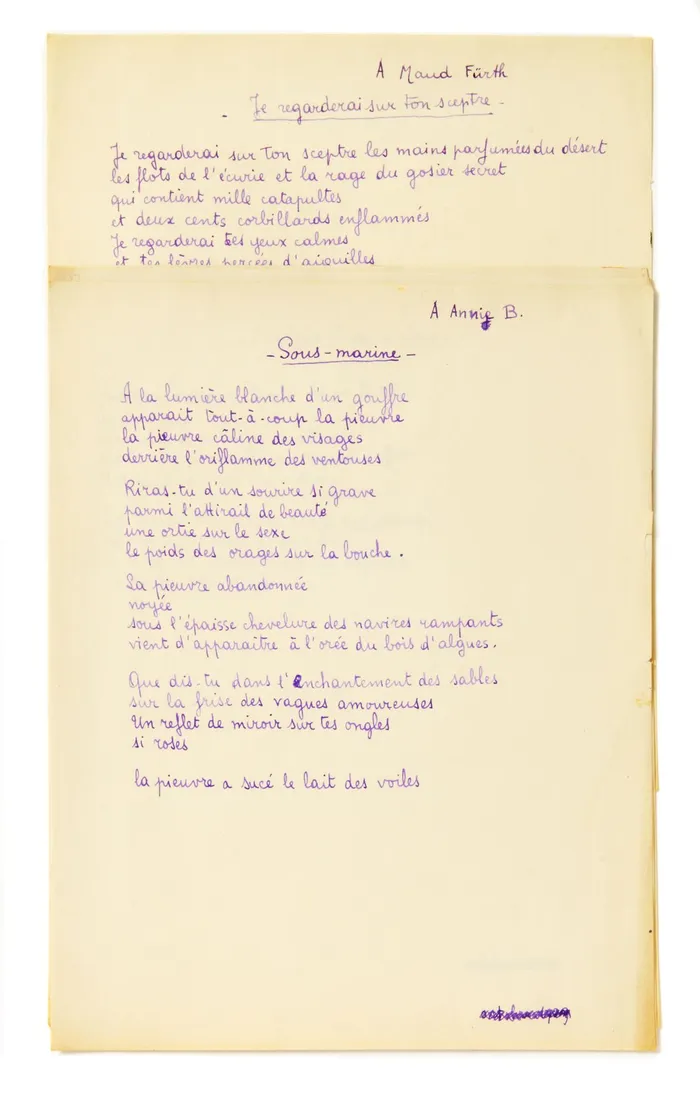 A Maud Fürth
- Je regarderai sur ton sceptre -
Je regarderai sur ton sceptre les mains parfumées du désert
les flots de l'écurie et la rage du gosier secret
qui contient mille catapultes
et deux cents corbillards enflammés
Je regarderai tes yeux calmes
et tes lèvres percées d'aiguilles
A Annie B.
- Sous-marine -
A la lumière blanche d'un gouffre
apparait tout-à-coup la pieuvre
la pieuvre câline des visages
derrière l'oriflamme des ventouses
Riras-tu d'un sourire si grave
parmi l'attirail de beauté
une ortie sur le sexe
le poids des orages sur la bouche.
La pieuvre abandonnée
noyée
sous l'épaisse chevelure des navires rampants
vient d'apparaître à l'orée du bois d'algues.
Que dis-tu dans l'enchantement des sables
sur la frise des vagues amoureuses
Un reflet de miroir sur tes ongles
si roses
la pieuvre a sucé le lait des voiles